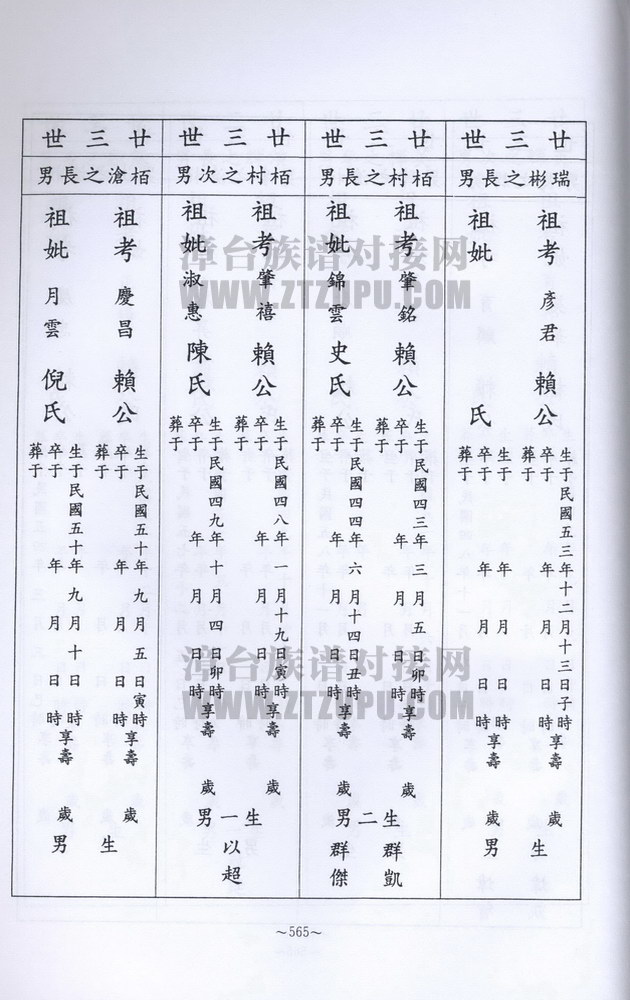 廿三世
瑞彬之長男
祖考 彥君 賴公
生于民國五三年十二月十三日子時享壽
卒于 年 月 日 時 歲
葬于
祖妣 氏
生于 年 月 日 時享壽
卒于 年 月 日 時 歲
葬于
生 男
廿三世
栢村之長男
祖考 肇銘 賴公
生于民國四三年三月五日卯時享壽
卒于 年 月 日 時 歲
葬于
祖妣 錦雲 史氏
生于民國四四年六月十四日丑時享壽
卒于 年 月 日 時 歲
葬于
生二男
群凱
群傑
廿三世
栢村之次男
祖考 肇禧 賴公
生于民國四八年一月十九日寅時享壽
卒于 年 月 日 時 歲
葬于
祖妣 淑惠 陳氏
生于民國四九年十月四日卯時享壽
卒于 年 月 日 時 歲
葬于
生一男
以超
廿三世
栢滄之長男
祖考 慶昌 賴公
生于民國五十年九月五日寅時享壽
卒于 年 月 日 時 歲
葬于
祖妣 月雲 倪氏
生于民國五十年九月十日 時享壽
卒于 年 月 日 時 歲
葬于
生 男
漳台族谱对接网
WWW.ZTZUPU.COM
漳台族谱对接网
WWW.ZTZUPU.COM
~565~